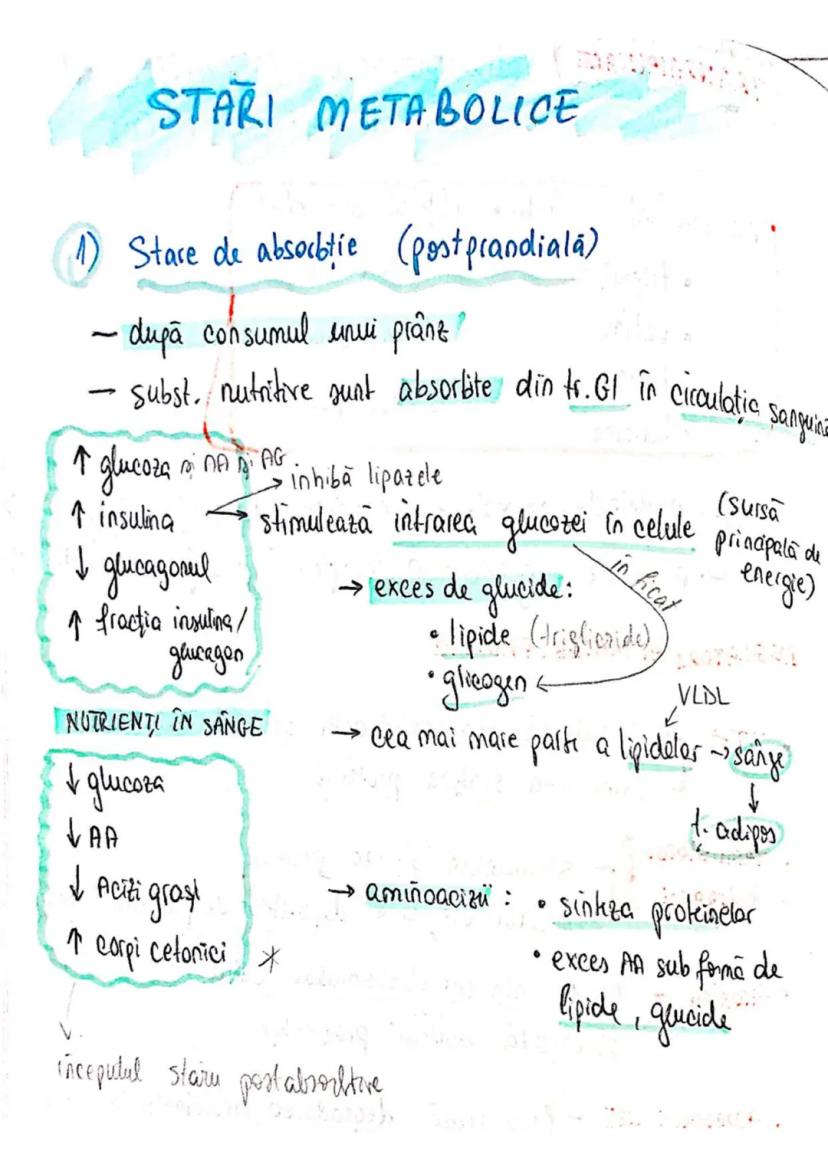 STĂRI METABOLICE
1) Stare de absorbție (postprandială)
— după consumul unui prânz
— subst. nutritive sunt absorbite din tr. GI în circulația sanguină
↑ glucoza și AA și AG
↑ insulina
↓ glucagonul
↑ fracția insulina/
glucagon
→ inhibă lipazele
→ stimulează intrarea glucozei în celule
(sursă
principală de
energie)
în ficat
→ exces de glucide:
• lipide (trigliceride)
• glicogen
NUTRIENȚI ÎN SÂNGE
VLDL
→ cea mai mare parte a lipidelor → sânge
↓
t. adipos
↓ glucoza
↓ AA
↓ Acizi grași
↑ corpi cetonici *
→ aminoacizii : • sinteza proteinelor
• exces AA sub formă de
lipide, glucide
începutul stării postabsorbtive